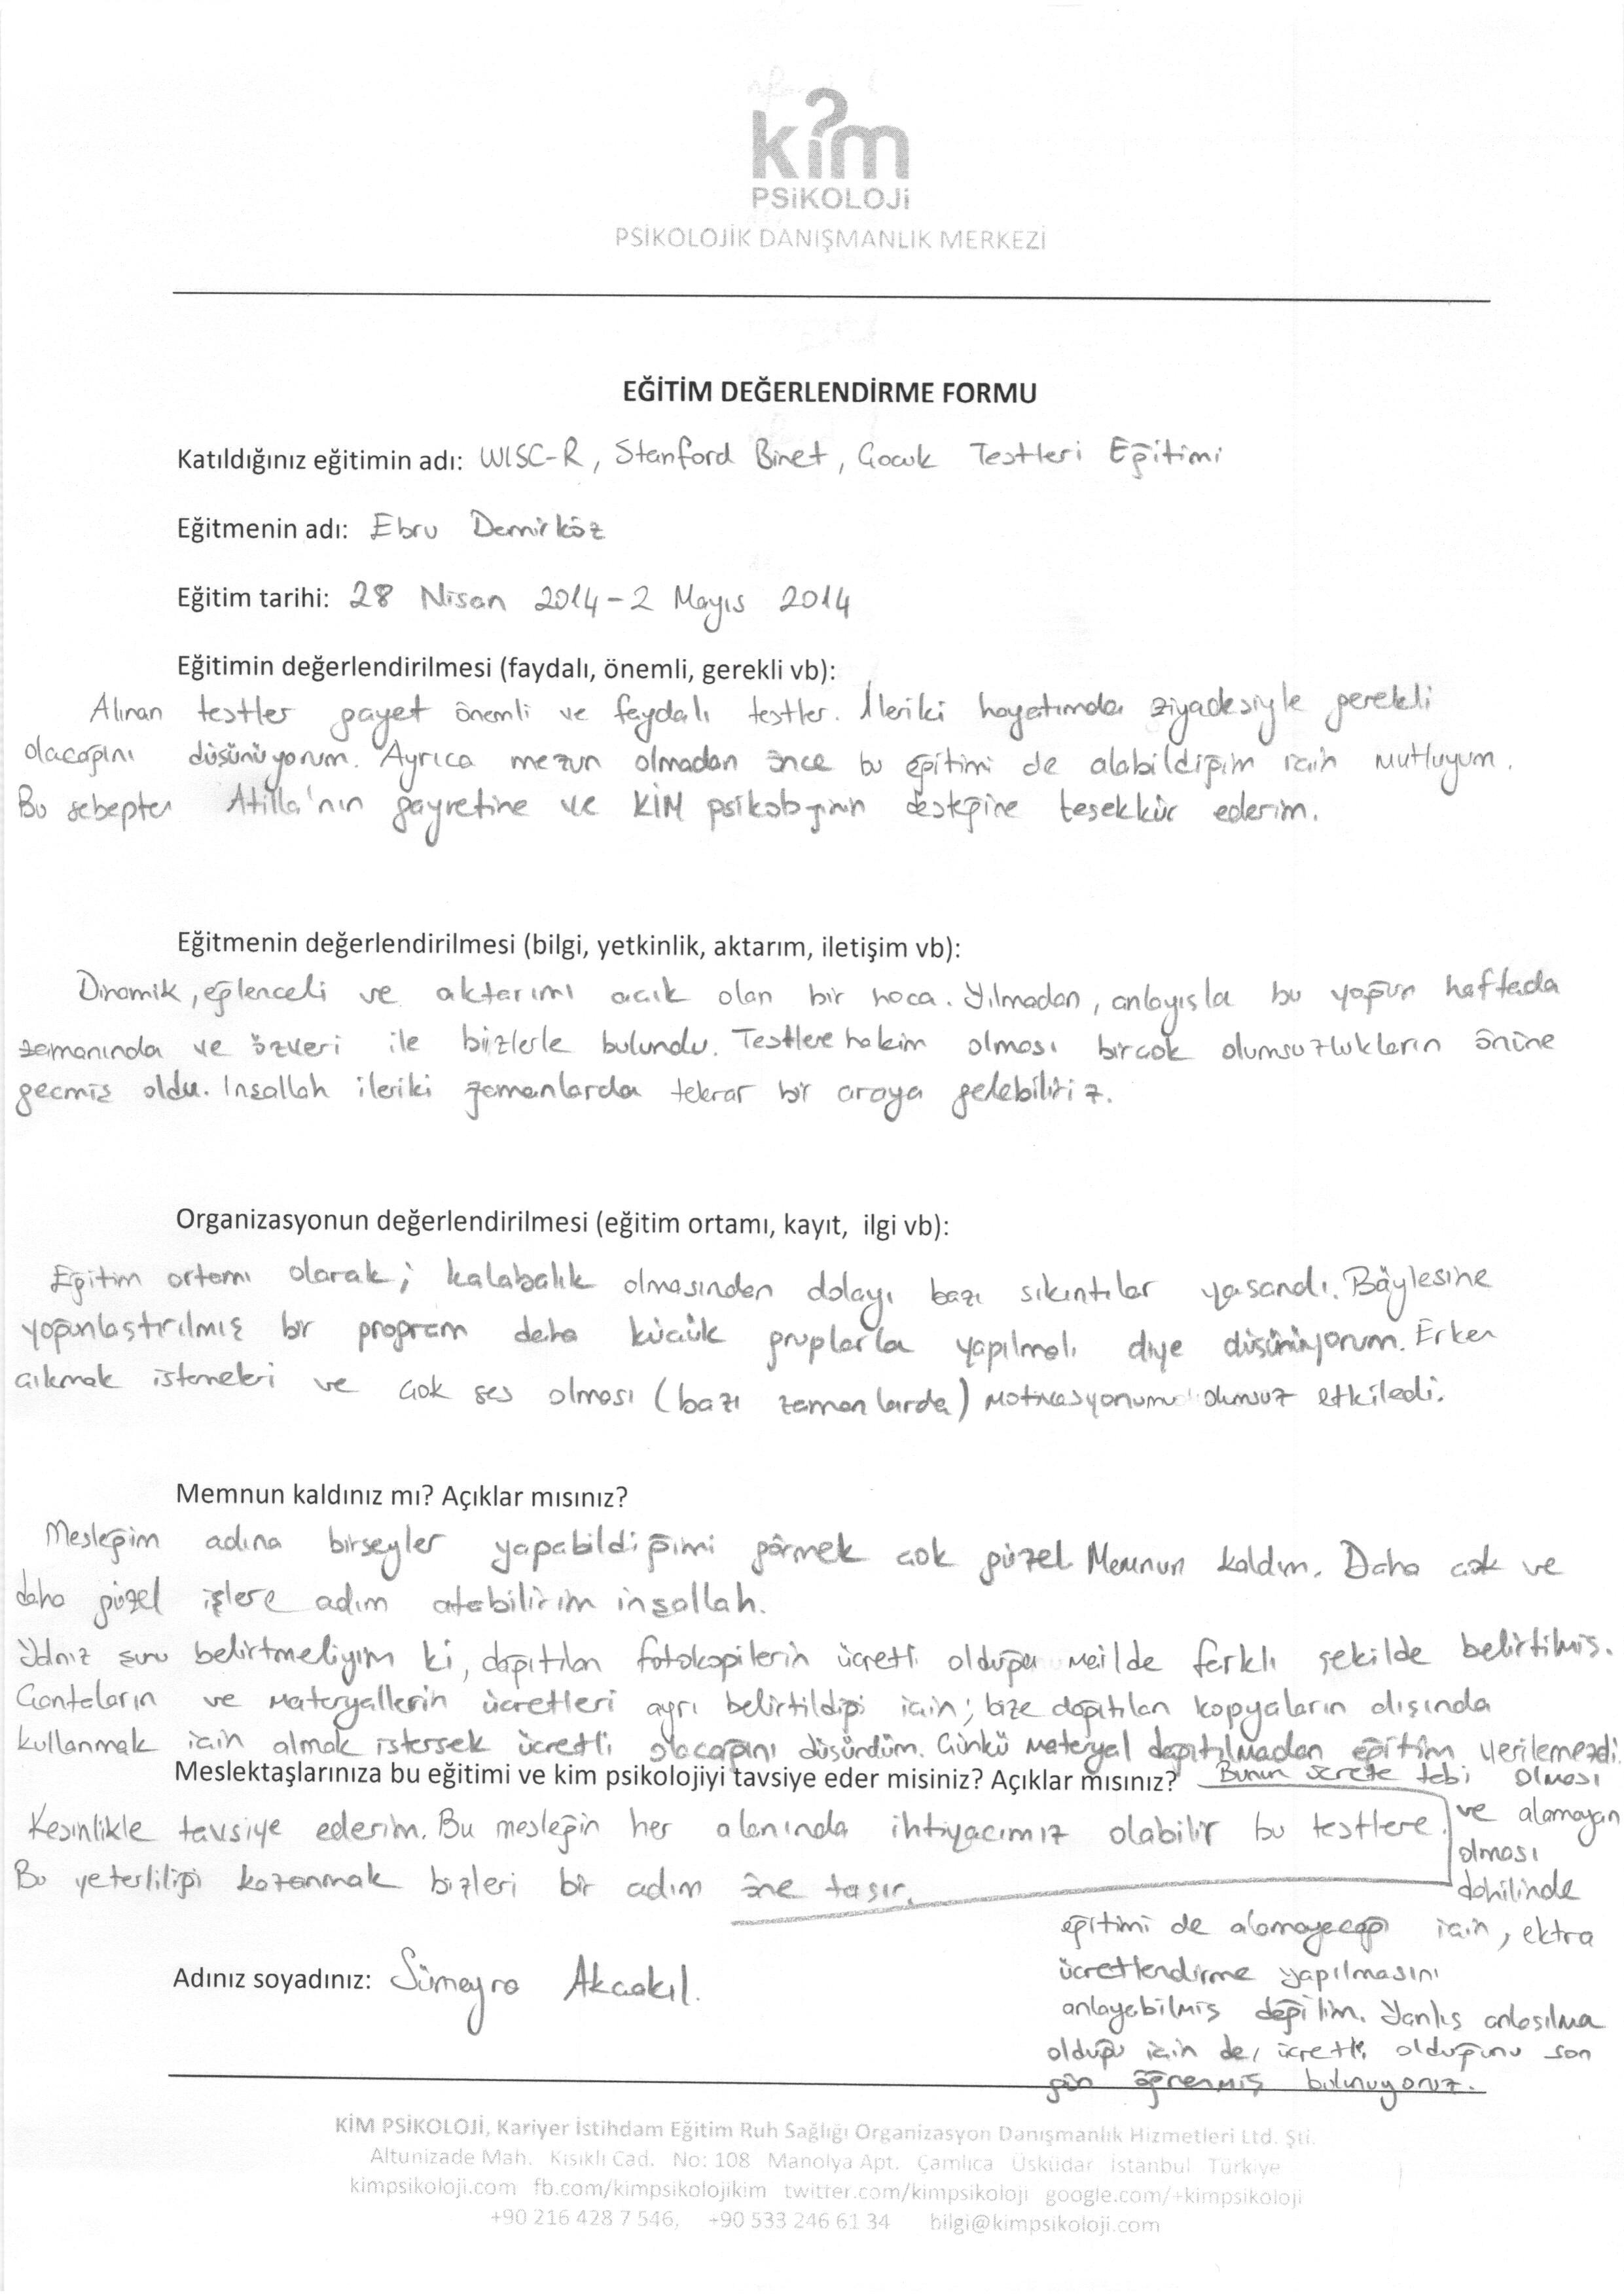 kim
PSiKOLOJi
PSİKOLOJİK DANIŞMANLIK MERKEZİ
EĞİTİM DEĞERLENDİRME FORMU
Katıldığınız eğitimin adı: WISC-R, Stanford Binet, Çocuk Testleri Eğitimi
Eğitmenin adı: Ebru Demirköz
Eğitim tarihi: 28 Nisan 2014-2 Mayıs 2014
Eğitimin değerlendirilmesi (faydalı, önemli, gerekli vb):
Alınan testler gayet önemli ve faydalı testler. İleriki hayatımda ziyadesiyle gerekli
olacağını düşünüyorum. Ayrıca mezun olmadan önce bu eğitimi de alabildiğim için mutluyum.
Bu sebepten Atilla'nın gayretine ve KİM psikolojinin desteğine teşekkür ederim.
Eğitmenin değerlendirilmesi (bilgi, yetkinlik, aktarım, iletişim vb):
Dinamik, eğlenceli ve aktarımı açık olan bir hoca. Yılmadan, anlayışla bu yoğun haftada
zamanında ve özveri ile bizlerle bulundu. Testlere hakim olması birçok olumsuzlukların önüne
geçmiş oldu. İnşallah ileriki zamanlarda tekrar bir araya gelebiliriz.
Organizasyonun değerlendirilmesi (eğitim ortamı, kayıt, ilgi vb):
Eğitim ortamı olarak; kalabalık olmasından dolayı bazı sıkıntılar yaşandı. Böylesine
yoğunlaştırılmış bir program daha küçük gruplarla yapılmalı diye düşünüyorum. Erken
çıkmak istemeleri ve çok ses olması (bazı zamanlarda) motivasyonumu olumsuz etkiledi.
Memnun kaldınız mı? Açıklar mısınız?
Mesleğim adına birşeyler yapabildiğimi görmek çok güzel. Memnun kaldım. Daha çok ve
daha güzel işlere adım atabilirim inşallah.
Yalnız şunu belirtmeliyim ki, dağıtılan fotokopilerin ücretli olduğu mailde farklı şekilde belirtilmiş.
Çantaların ve materyallerin ücretleri ayrı belirtildiği için; bize dağıtılan kopyaların dışında
kullanmak için almak istersek ücretli olacağını düşündüm. Çünkü materyal dağıtılmadan eğitim verilemezdi.
Meslektaşlarınıza bu eğitimi ve kim psikolojiyi tavsiye eder misiniz? Açıklar mısınız? Bunun ücrete tabi olması
Kesinlikle tavsiye ederim. Bu mesleğin her alanında ihtiyacımız olabilir bu testlere. ve alamayan
olması
Bu yeterliliği kazanmak bizleri bir adım öne taşır. dahilinde
eğitimi de alamayacağı için, ektra
Adınız soyadınız: Sümeyra Akçakıl.
ücretlendirme yapılmasını
anlayabilmiş değilim. Yanlış anlaşılma
olduğu için de, ücretli olduğunu son
gün öğrenmiş bulunuyoruz.
KİM PSİKOLOJİ, Kariyer İstihdam Eğitim Ruh Sağlığı Organizasyon Danışmanlık Hizmetleri Ltd. Şti.
Altunizade Mah. Kısıklı Cad. No: 108 Manolya Apt. Çamlıca Üsküdar İstanbul Türkiye
kimpsikoloji.com fb.com/kimpsikolojikim twitter.com/kimpsikoloji google.com/+kimpsikoloji
+90 216 428 7 546, +90 533 246 61 34 bilgi@kimpsikoloji.com